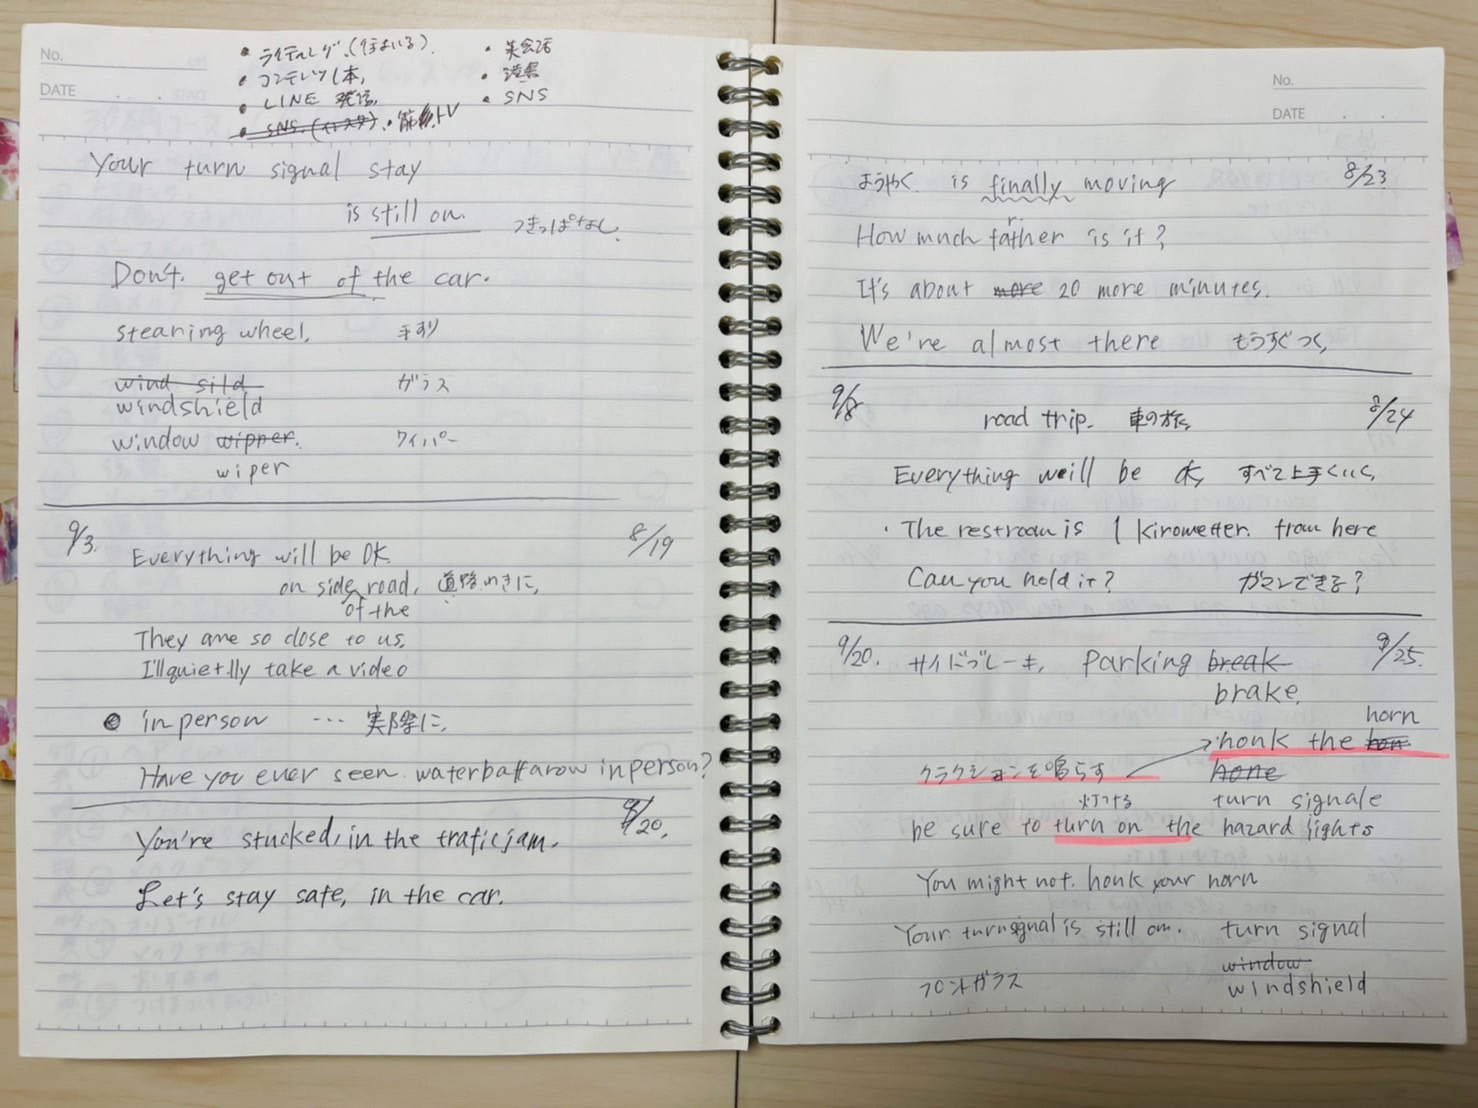 No.
DATE . .
• ライティング、(
• 英会話
• コンテンツ1本、
• 読書
• LINE 発信、
• SNS
• SNS.
Your turn signal stay
is still on.
つきっぱなし。
Don't. get out of the car.
stearing wheel,
手すり
wind sild
ガラス
windshield
window wipper.
ワイパー
wiper
9/3.
8/19
Everything will be OK.
on side road, 道路わきに,
of the
They are so close to us,
I'll quiet.lly take a video
• in person … 実際に,
Have you ever seen waterbaffarow in person?
8/20,
You're stucked, in the trafic jam.
Let's stay safe, in the car.
No.
DATE . .
ようやく. is finally moving
8/23
r.
How much father is it?
It's about more 20 more minutes.
We're almost there もうすぐつく,
9/8
road trip. 車の旅,
8/24
Everything weill be ok, すべて上手くいく,
• The restroom is 1 kirometter. from here
Can you hold it? ガマンできる?
9/20.
サイドブレーキ, parking break
8/25.
brake,
horn
honk the hon
クラクションを鳴らす
hone
灯つける
turn signale
be sure to turn on the hazard lights
You might not. honk your horn
Your turnsignal is still on. turn signal
window
フロントガラス
windshield